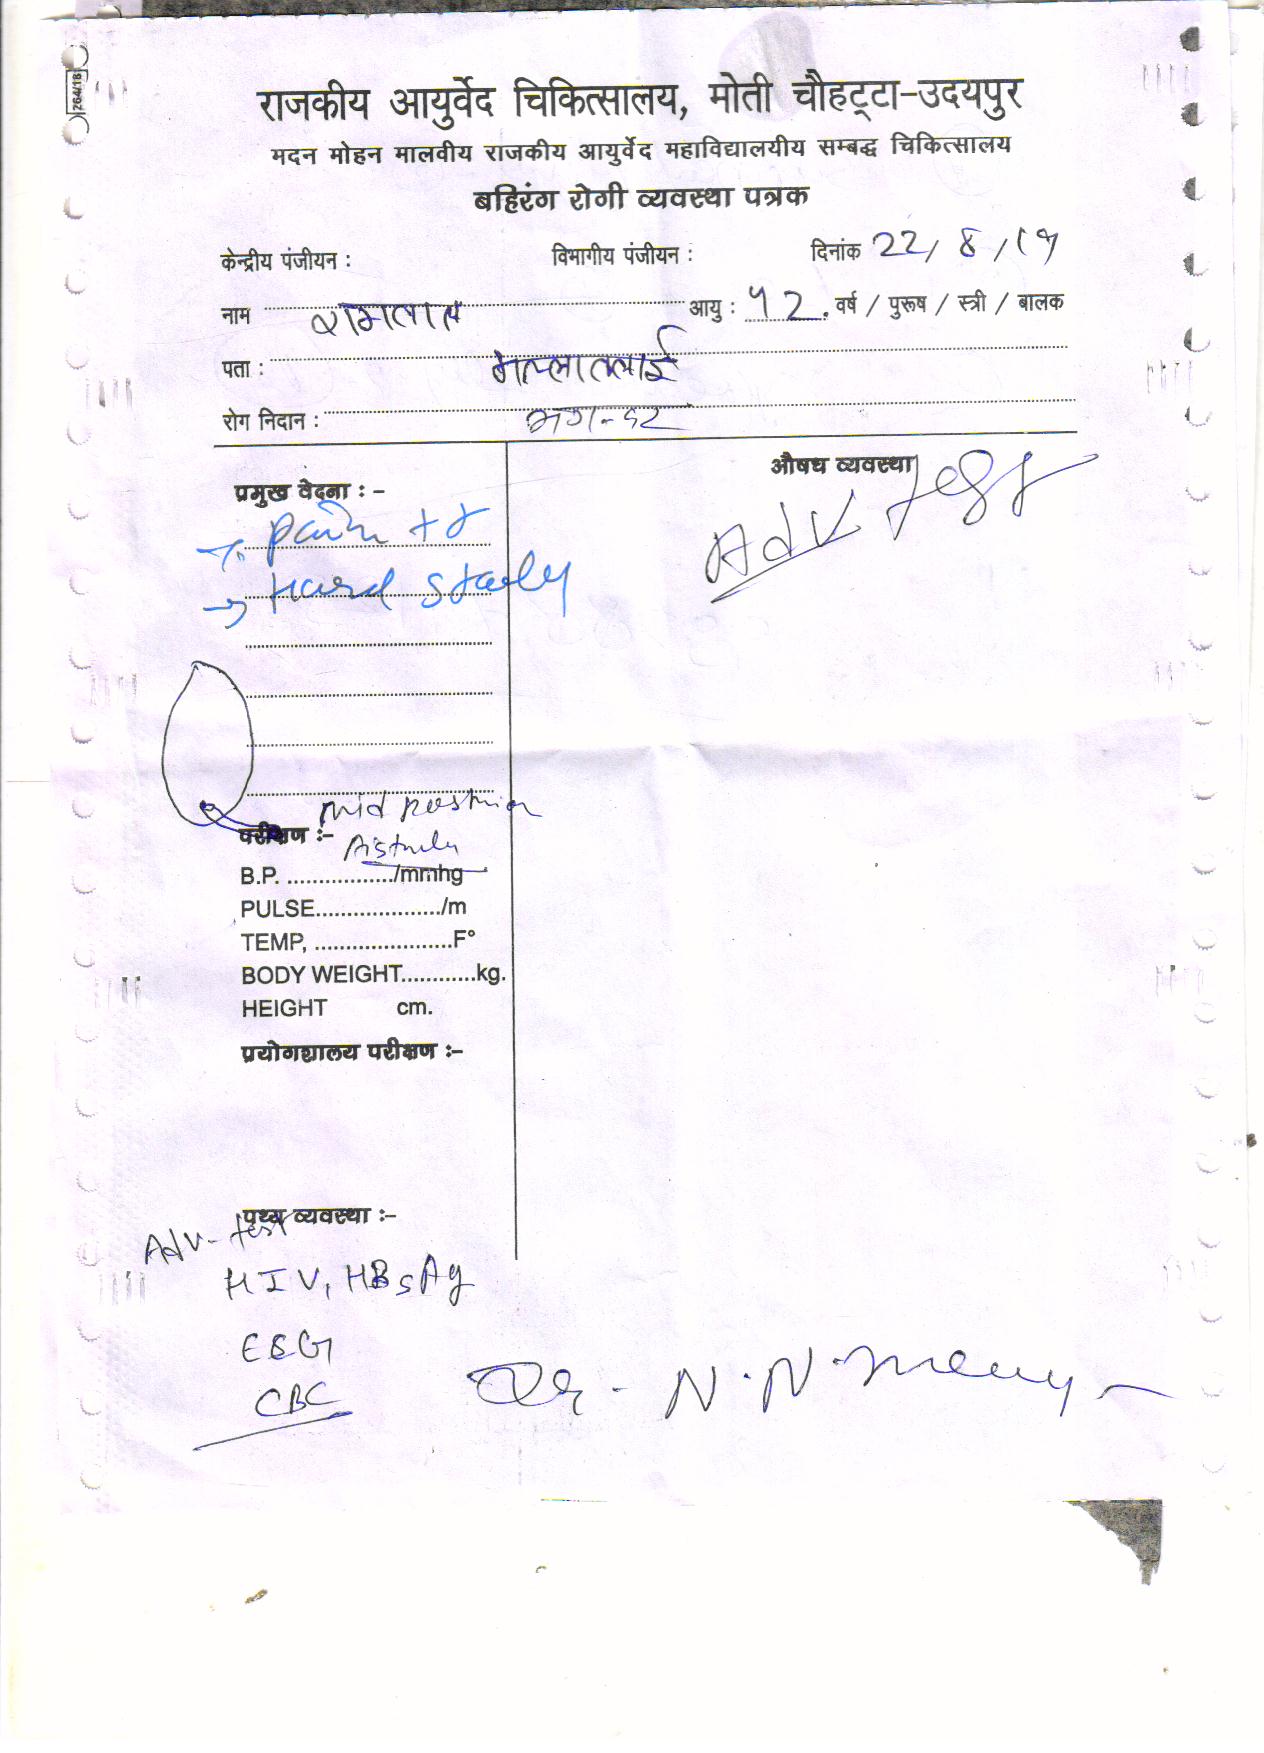 264/18
राजकीय आयुर्वेद चिकित्सालय, मोती चौहट्टा-उदयपुर
मदन मोहन मालवीय राजकीय आयुर्वेद महाविद्यालयीय सम्बद्ध चिकित्सालय
बहिरंग रोगी व्यवस्था पत्रक
केन्द्रीय पंजीयन : विभागीय पंजीयन : दिनांक 22/8/19
नाम रामलाल आयु : 52 वर्ष / पुरूष / स्त्री / बालक
पता : मल्लातलाई
रोग निदान : भगन्दर
औषध व्यवस्था
Adv test
प्रमुख वेदना : -
→ pain ++
→ Hard
mid
परीक्षण :-
B.P. ................./mmhg
PULSE..................../m
TEMP, ......................F°
BODY WEIGHT............kg.
HEIGHT cm.
प्रयोगशालय परीक्षण :-
पथ्य व्यवस्था :-
Adv- test
HIV, HBsAg
CBC
Dr. N.N.